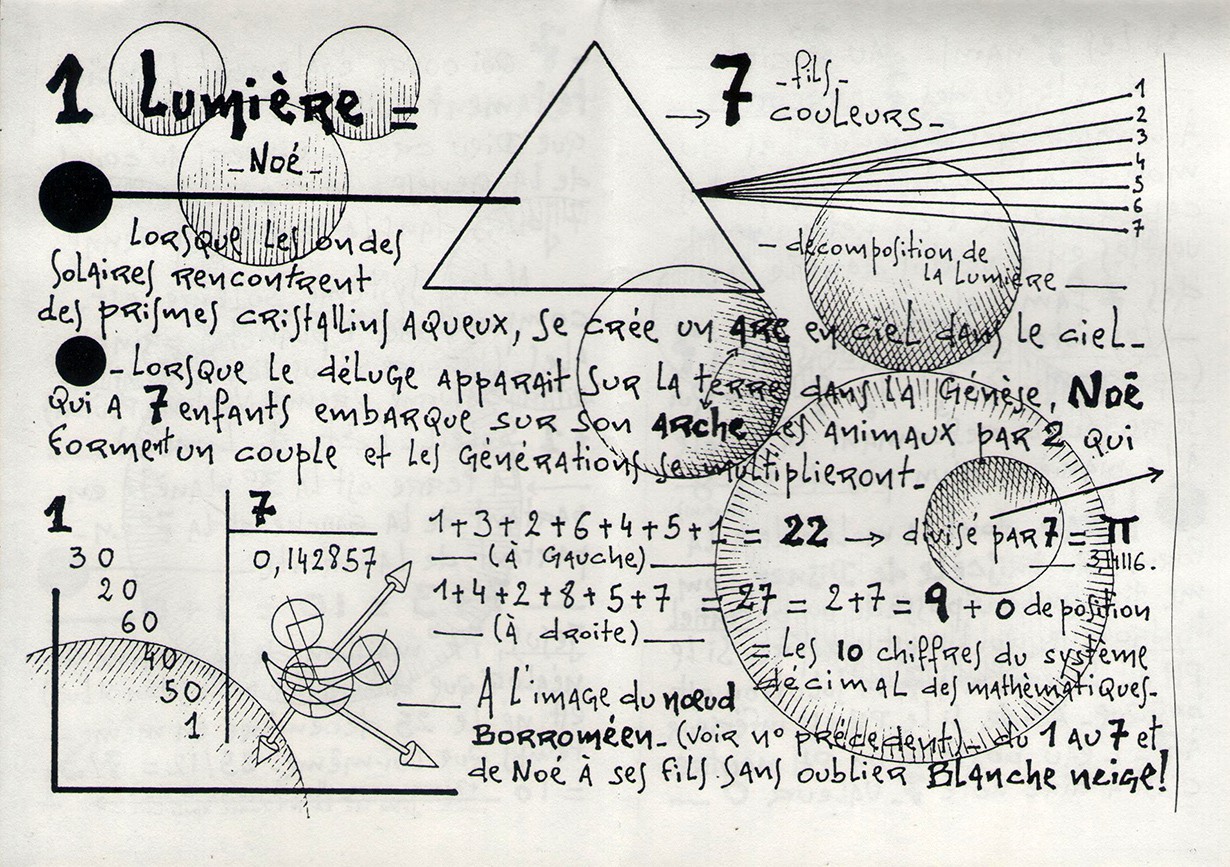 1 Lumière =
_ Noé _
→ 7 - fils -
couleurs _
1
2
3
4
5
6
7
— décomposition de
la Lumière ___
Lorsque les ondes
solaires rencontrent
des prismes cristallins aqueux, se crée un arc en ciel dans le ciel _
- Lorsque le déluge apparait sur la terre dans la Génèse, Noé
qui a 7 enfants embarque sur son Arche les animaux par 2 qui
forment un couple et les générations se multiplieront _
1
30
20
60
40
50
1
7
0,142857
1+3+2+6+4+5+1 = 22 → divisé par 7 = π
— (à gauche) —
1+4+2+8+5+7 = 27 = 2+7 = 9 + 0 de position
— (à droite) —
= les 10 chiffres du système
décimal des mathèmatiques -
— à l'image du nœud
Borroméen _ (voir n° précédent) _ du 1 au 7 et
de Noé à ses fils sans oublier Blanche neige!